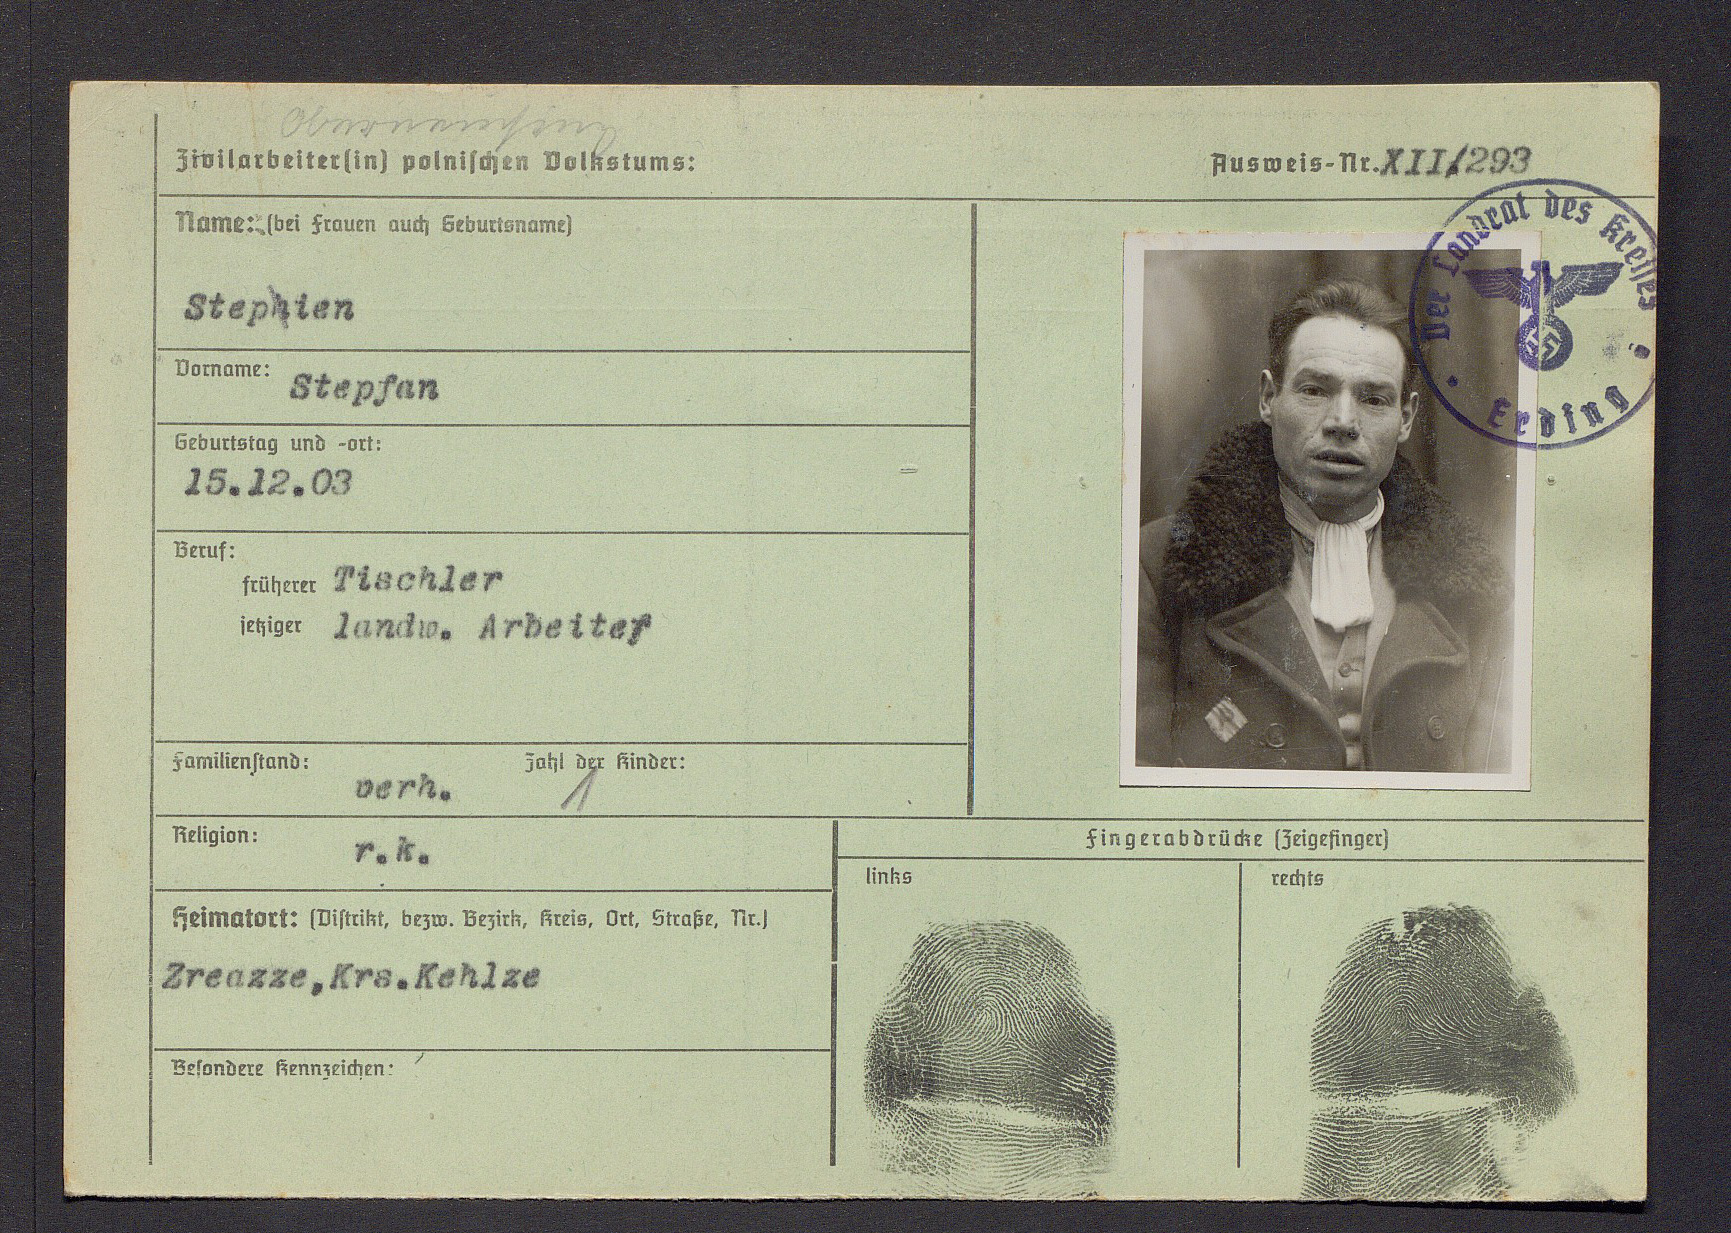 Zivilarbeiter(in) polnischen Volkstums:
Ausweis-Nr. XII/293
Name: (bei Frauen auch Geburtsname)
Stephien
Vorname: Stepfan
Geburtstag und -ort:
15.12.03
Beruf:
früherer Tischler
jetziger landw. Arbeiter
Familienstand: verh. Zahl der Kinder: 1
Religion: r.k.
Heimatort: (Distrikt, bezw. Bezirk, Kreis, Ort, Straße, Nr.)
Zreazze,Krs.Kehlze
Besondere Kennzeichen:
Der Landrat des Kreises
Erding
P
Fingerabdrücke (Zeigefinger)
links
rechts